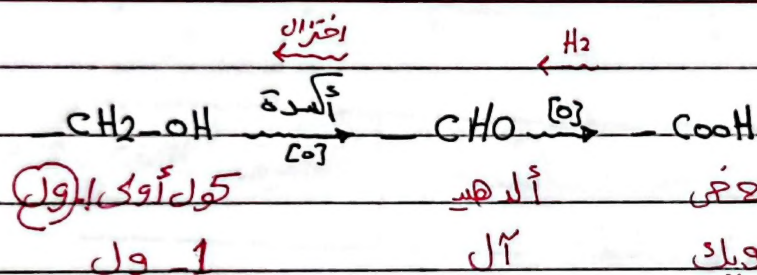 اختزال H2
–CH2–OH أكسدة [O] – CHO [O] – COOH
كول أولي ول ألدهيد
1 – ول آل